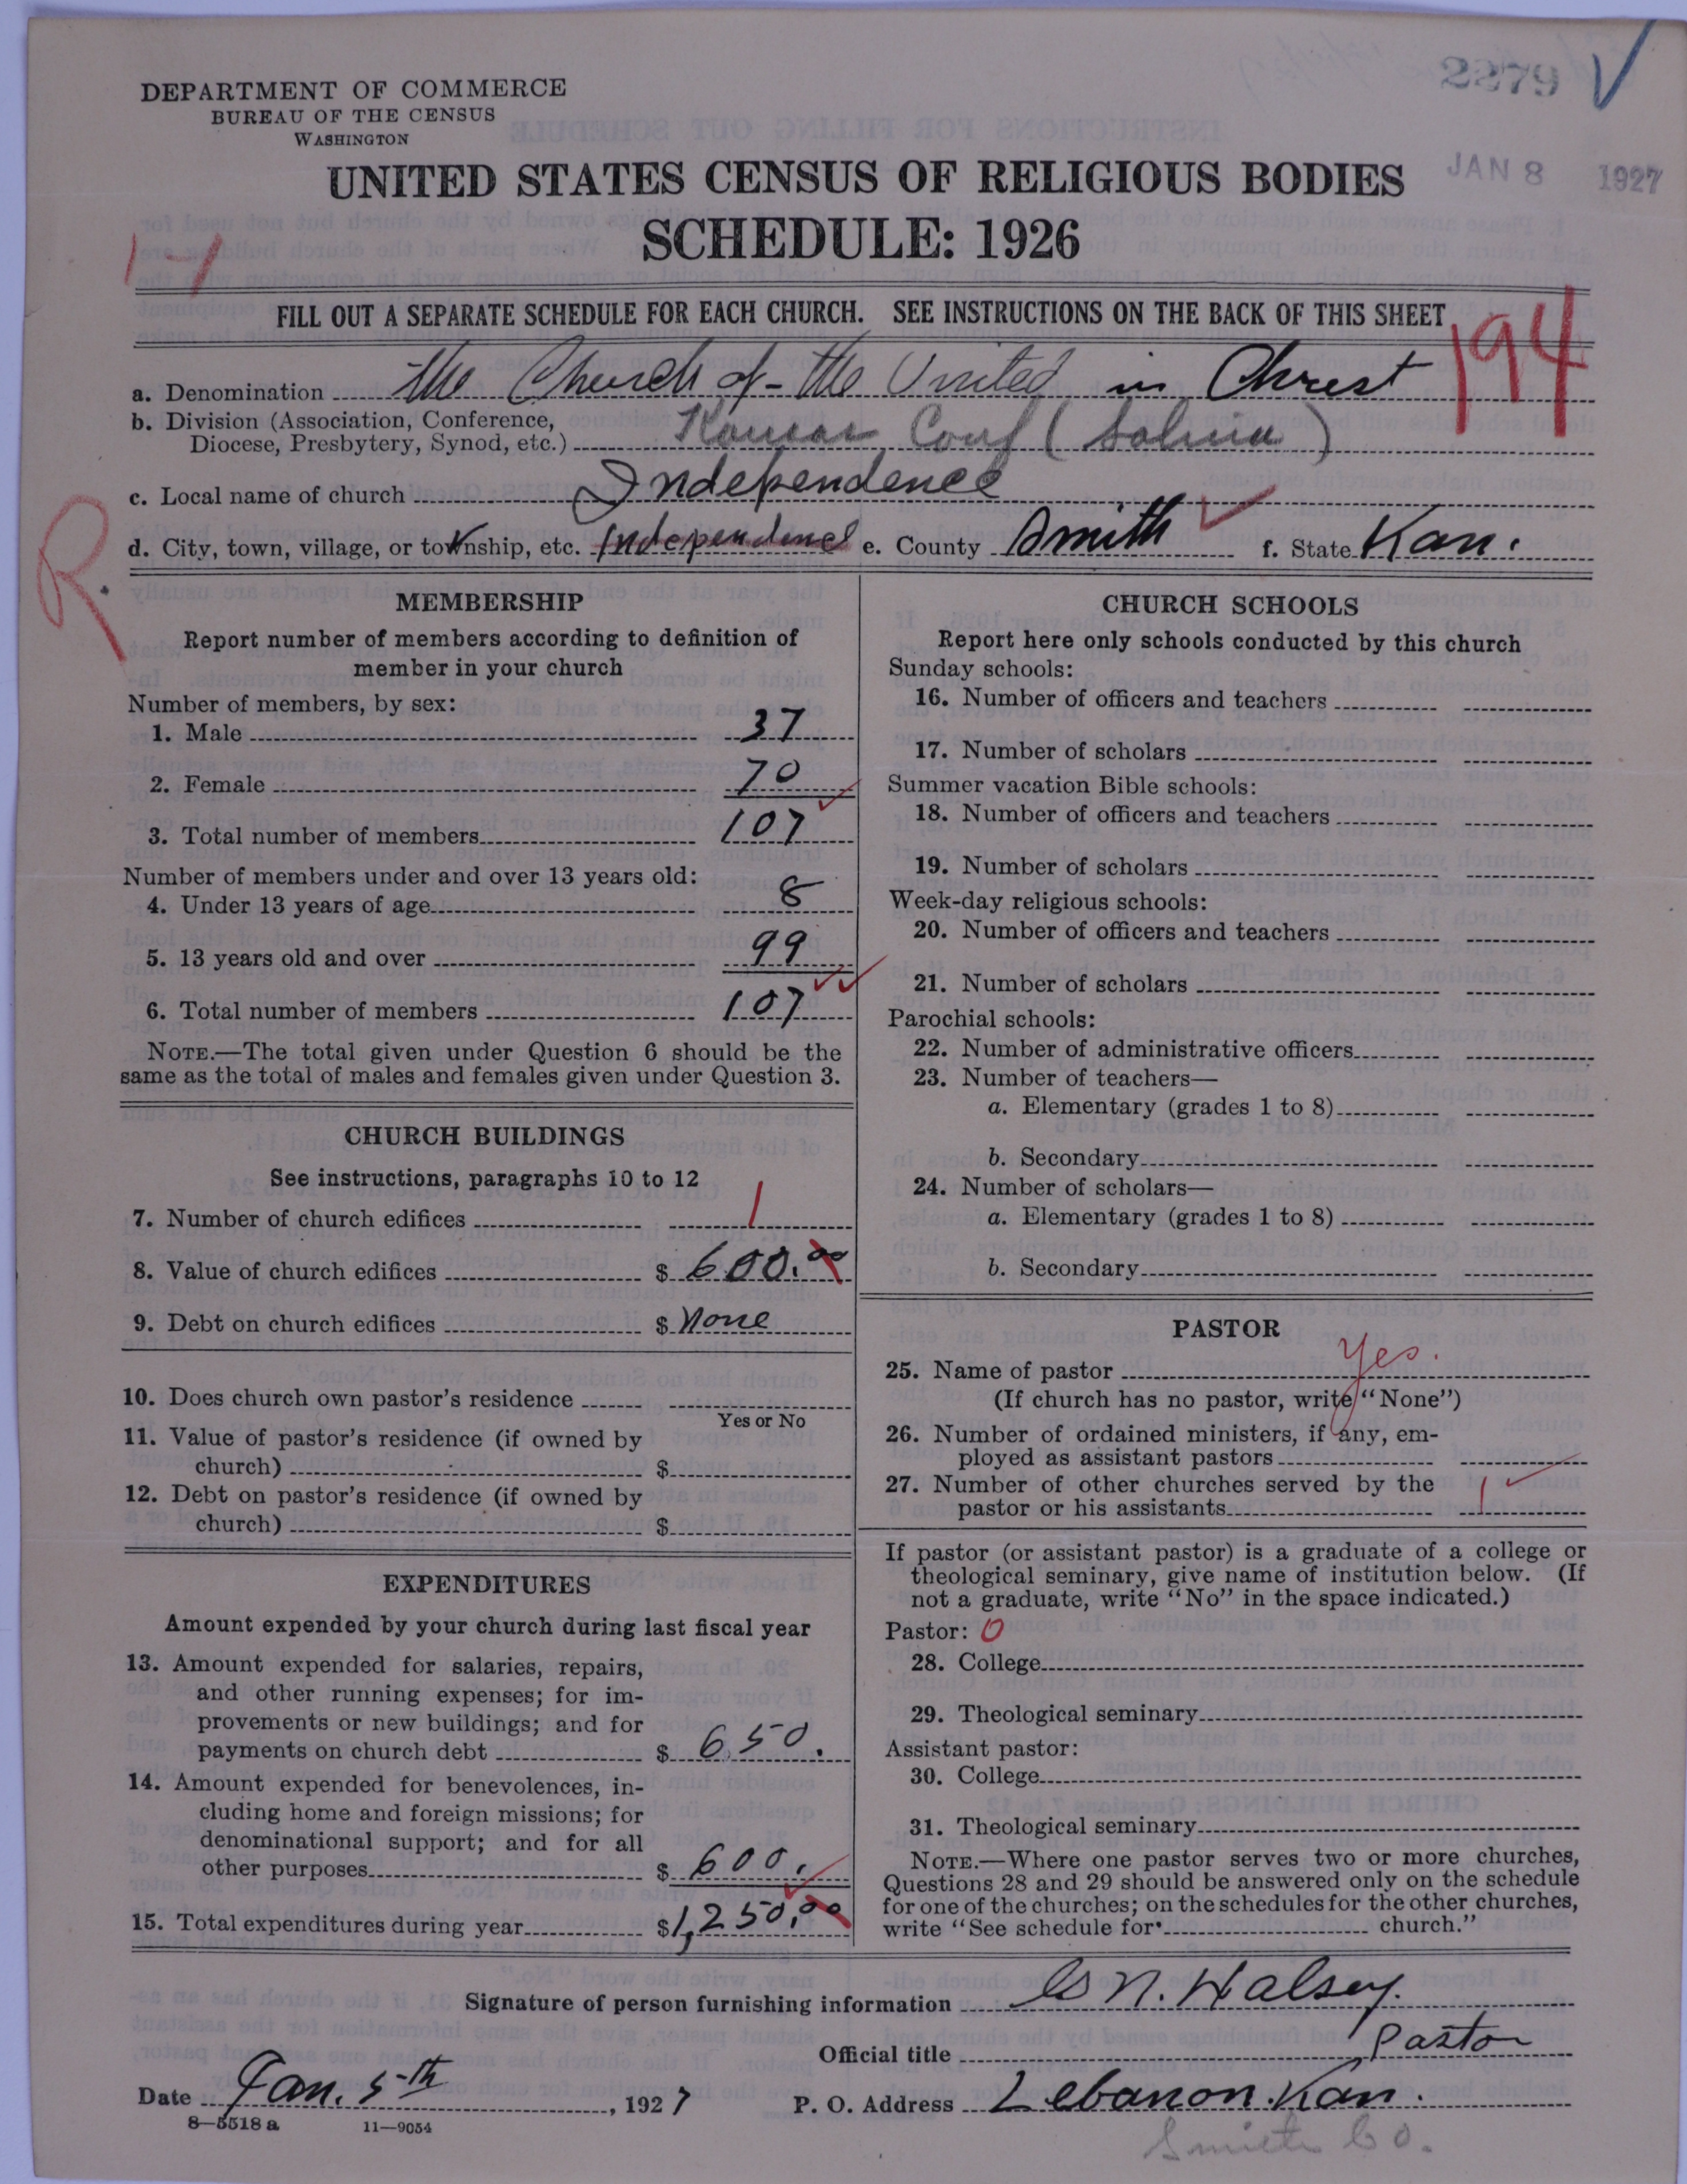 2279
DEPARTMENT OF COMMERCE
BUREAU OF THE CENSUS
WASHINGTON
JAN 8 1927
UNITED STATES CENSUS OF RELIGIOUS BODIES
SCHEDULE: 1926
FILL OUT A SEPARATE SCHEDULE FOR EACH CHURCH. SEE INSTRUCTIONS ON THE BACK OF THIS SHEET
194
a. Denomination The Church of the United in Christ
b. Division (Association, Conference,
Diocese, Presbytery, Synod, etc.) Kansas Conf (Salina)
c. Local name of church Independence
R
d. City, town, village, or township, etc. Independence e. County Smith f. State Kan.
MEMBERSHIP
Report number of members according to definition of
member in your church
Number of members, by sex:
1. Male 37
2. Female 70
3. Total number of members 107
Number of members under and over 13 years old:
4. Under 13 years of age 8
5. 13 years old and over 99
6. Total number of members 107
NOTE.—The total given under Question 6 should be the
same as the total of males and females given under Question 3.
CHURCH BUILDINGS
See instructions, paragraphs 10 to 12
7. Number of church edifices 1
8. Value of church edifices $ 600.00
9. Debt on church edifices $ None
10. Does church own pastor's residence
Yes or No
11. Value of pastor's residence (if owned by
church) $
12. Debt on pastor's residence (if owned by
church) $
EXPENDITURES
Amount expended by your church during last fiscal year
13. Amount expended for salaries, repairs,
and other running expenses; for im-
provements or new buildings; and for
payments on church debt $ 650.
14. Amount expended for benevolences, in-
cluding home and foreign missions; for
denominational support; and for all
other purposes $ 600.
15. Total expenditures during year $1,250.00
CHURCH SCHOOLS
Report here only schools conducted by this church
Sunday schools:
16. Number of officers and teachers
17. Number of scholars
Summer vacation Bible schools:
18. Number of officers and teachers
19. Number of scholars
Week-day religious schools:
20. Number of officers and teachers
21. Number of scholars
Parochial schools:
22. Number of administrative officers
23. Number of teachers—
a. Elementary (grades 1 to 8)
b. Secondary
24. Number of scholars—
a. Elementary (grades 1 to 8)
b. Secondary
PASTOR
25. Name of pastor Yes.
(If church has no pastor, write "None")
26. Number of ordained ministers, if any, em-
ployed as assistant pastors
27. Number of other churches served by the
pastor or his assistants 1
If pastor (or assistant pastor) is a graduate of a college or
theological seminary, give name of institution below. (If
not a graduate, write "No" in the space indicated.)
Pastor: 0
28. College
29. Theological seminary
Assistant pastor:
30. College
31. Theological seminary
NOTE.—Where one pastor serves two or more churches,
Questions 28 and 29 should be answered only on the schedule
for one of the churches; on the schedules for the other churches,
write "See schedule for church."
Signature of person furnishing information N. Halsey.
Official title Pastor
Date Jan. 5th, 1927 P. O. Address Lebanon. Kan.
8—5518 a 11—9054
Smith Co.